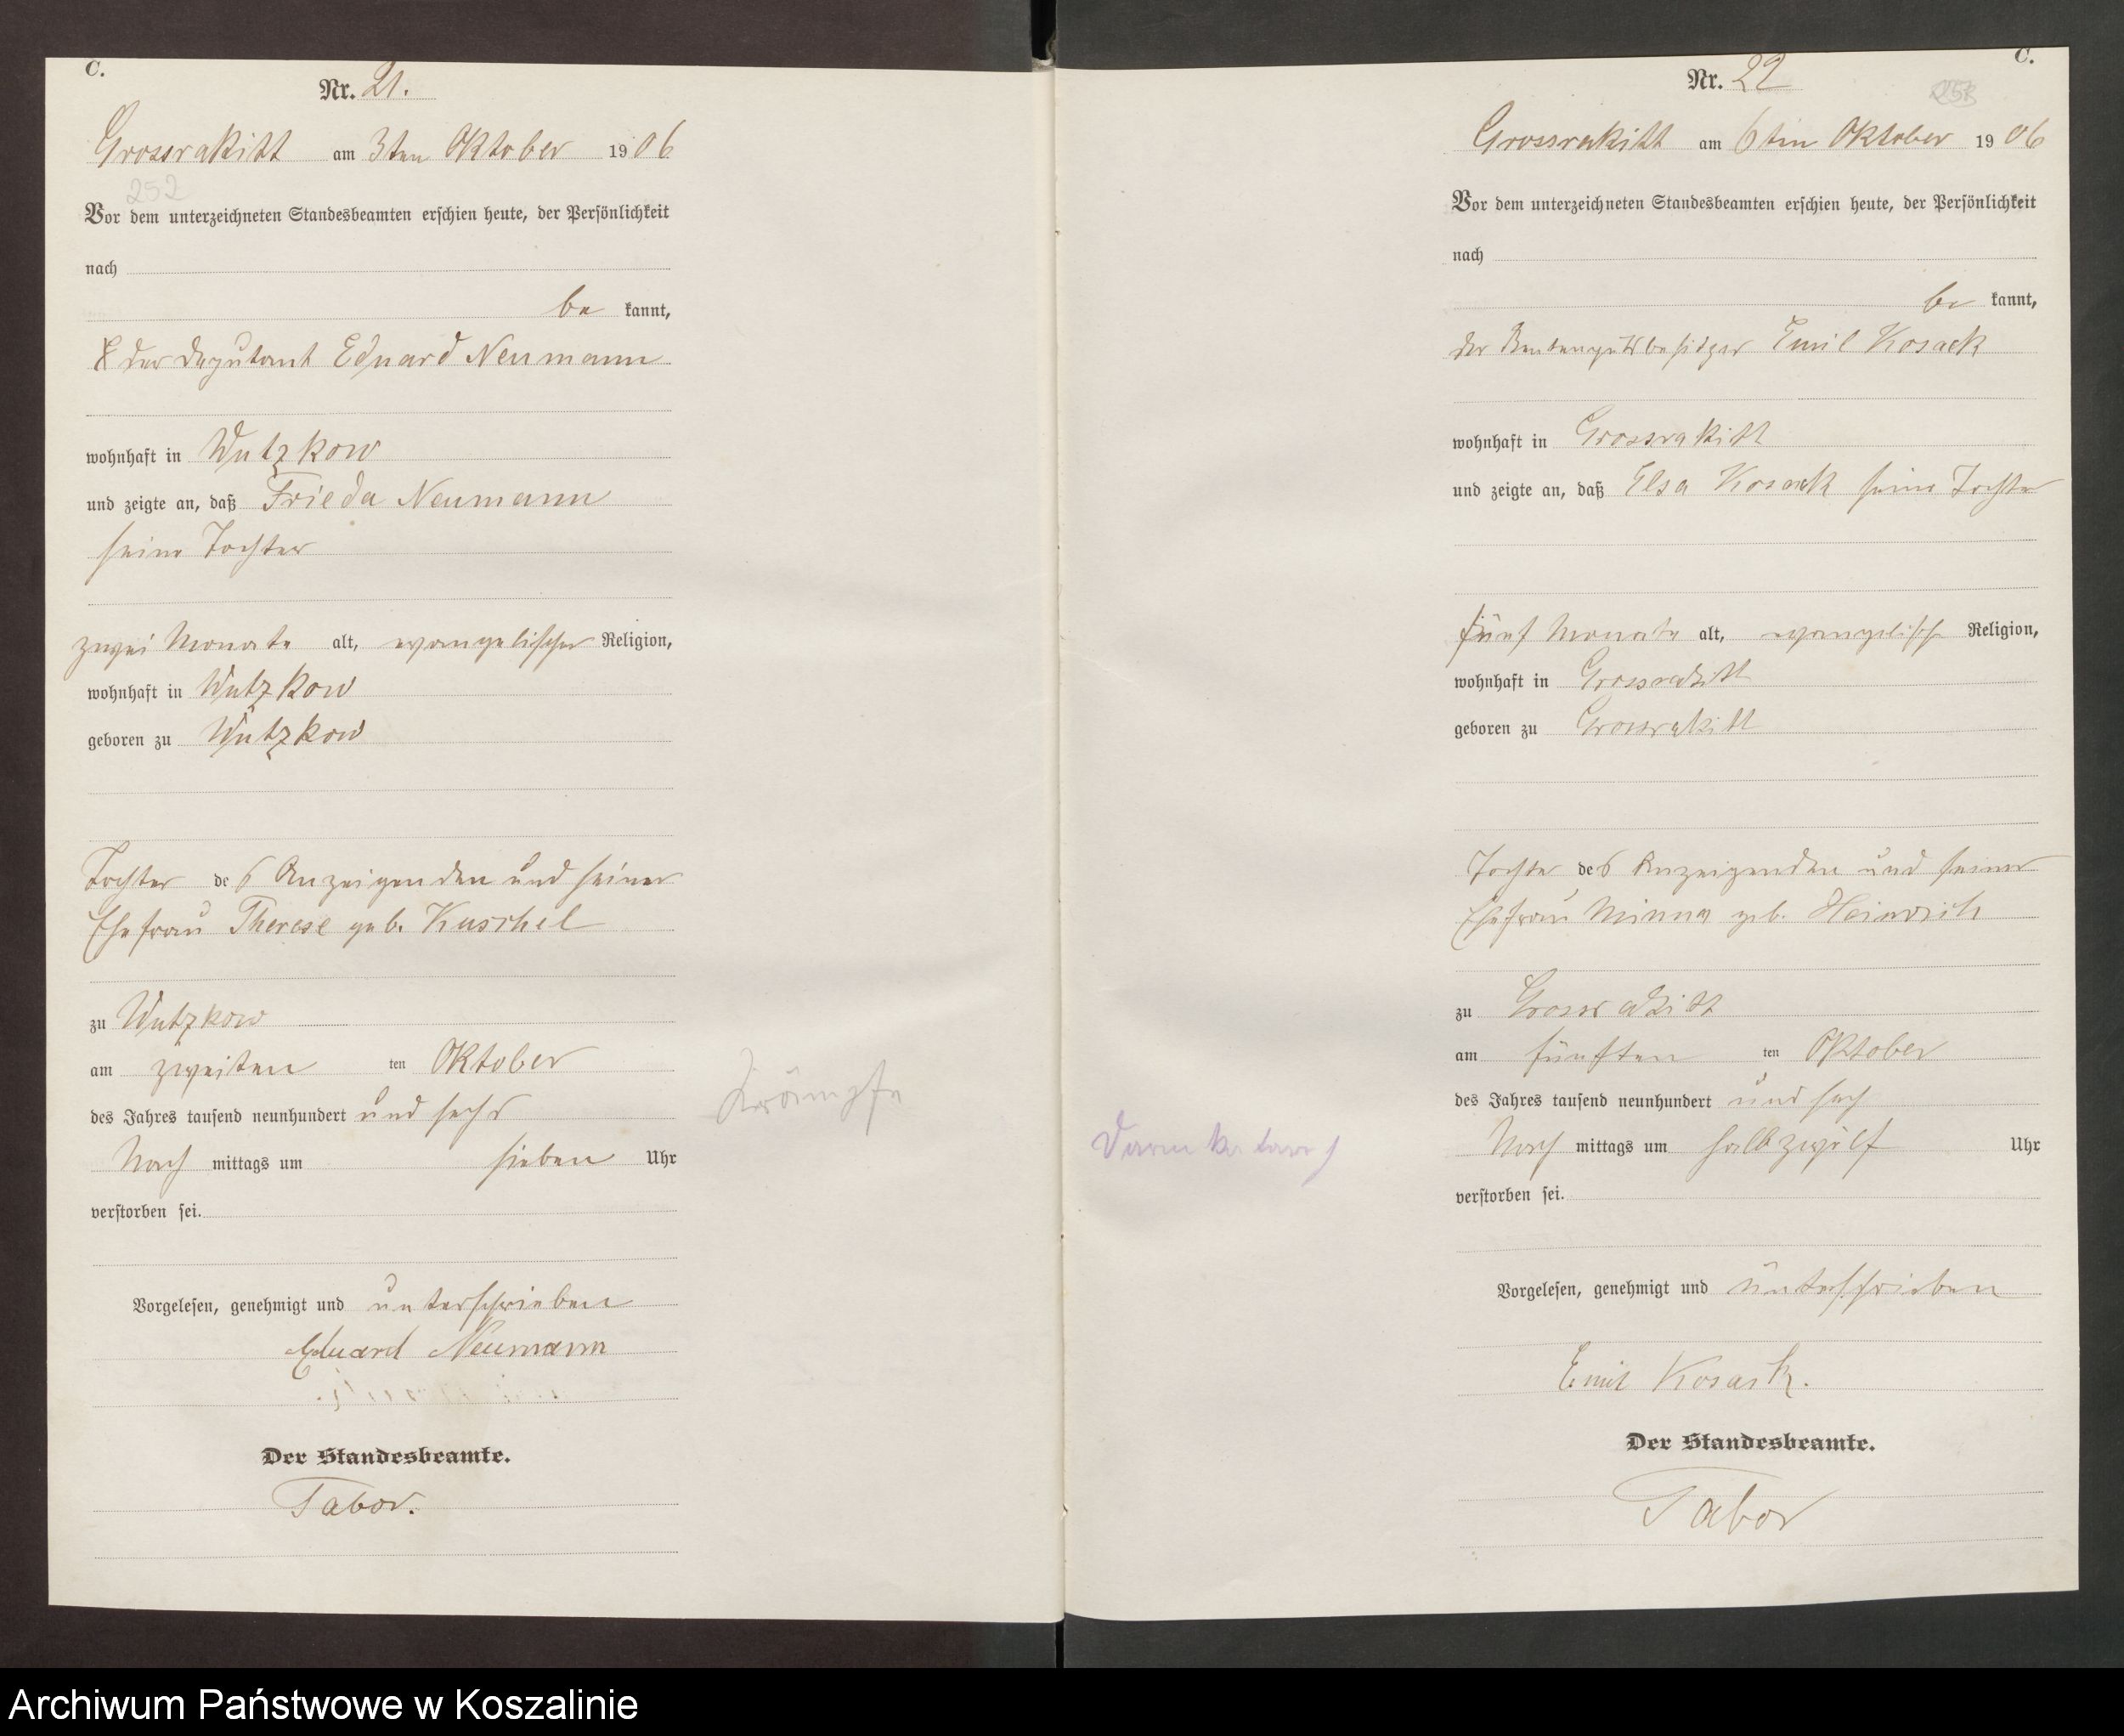 C.
Nr. 21.
Grossrakitt am 3ten Oktober 1906
252
Vor dem unterzeichneten Standesbeamten erschien heute, der Persönlichkeit
nach
be kannt,
der Deputant Eduard Neumann
wohnhaft in Wutzkow
und zeigte an, daß Frieda Neumann
seine Tochter
zwei Monate alt, evangelischer Religion,
wohnhaft in Wutzkow
geboren zu Wutzkow
Tochter des Anzeigenden und seiner
Ehefrau Therese geb. Kuschel
zu Wutzkow
am zweiten ten Oktober
des Jahres tausend neunhundert und sechs
Nach mittags um sieben Uhr
verstorben sei.
Vorgelesen, genehmigt und unterschrieben
Eduard Neumann
Der Standesbeamte.
Tabor.
Krämpfe
C.
Nr. 22
253
Grossrakitt am 6ten Oktober 1906
Vor dem unterzeichneten Standesbeamten erschien heute, der Persönlichkeit
nach
be kannt,
der Rentengutsbesitzer Emil Kosack
wohnhaft in Grossrakitt
und zeigte an, daß Elsa Kosack seine Tochter
fünf Monate alt, evangelische Religion,
wohnhaft in Grossrakitt
geboren zu Grossrakitt
Tochter des Anzeigenden und seiner
Ehefrau Minna geb. Heinrich
zu Grossrakitt
am fünften ten Oktober
des Jahres tausend neunhundert und sech
Nach mittags um halb zwölf Uhr
verstorben sei.
Vorgelesen, genehmigt und unterschrieben
Emil Kosack.
Der Standesbeamte.
Tabor
Darmkatarrh
Archiwum Państwowe w Koszalinie